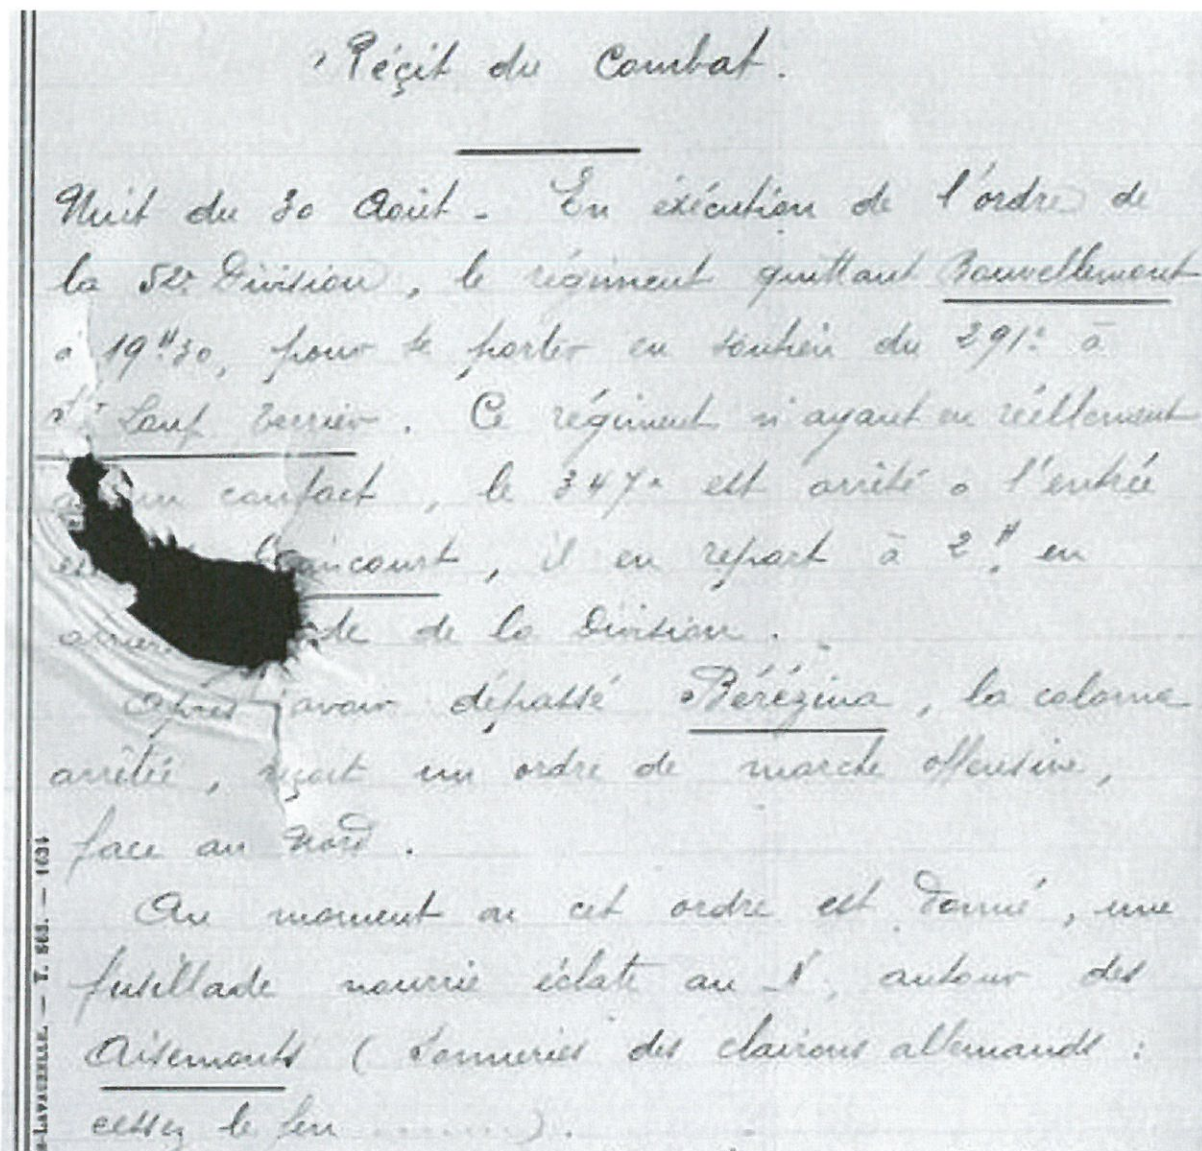 Réçit du Combat.
Nuit du 30 Août - En éxécution de l'ordre de
la 52e Division, le régiment quittant Bouvellemont
à 19H30, pour se porter en soutien du 291e à
St Loup Terrier. Ce régiment n'ayant eu réellement
contact, le 347e est arrêté à l'entrée
court, il en repart à 2H en
de la Division.
Après avoir dépassé Bérézina, la colonne
arrêtée, reçoit un ordre de marche offensive,
face au Nord.
Au moment où cet ordre est donné, une
fusillade nourrie éclate au N, autour des
Aisements (sonneries des clairons allemands :
cessez le feu ........).
LAVAUZELLE. — T. 503. — 1634